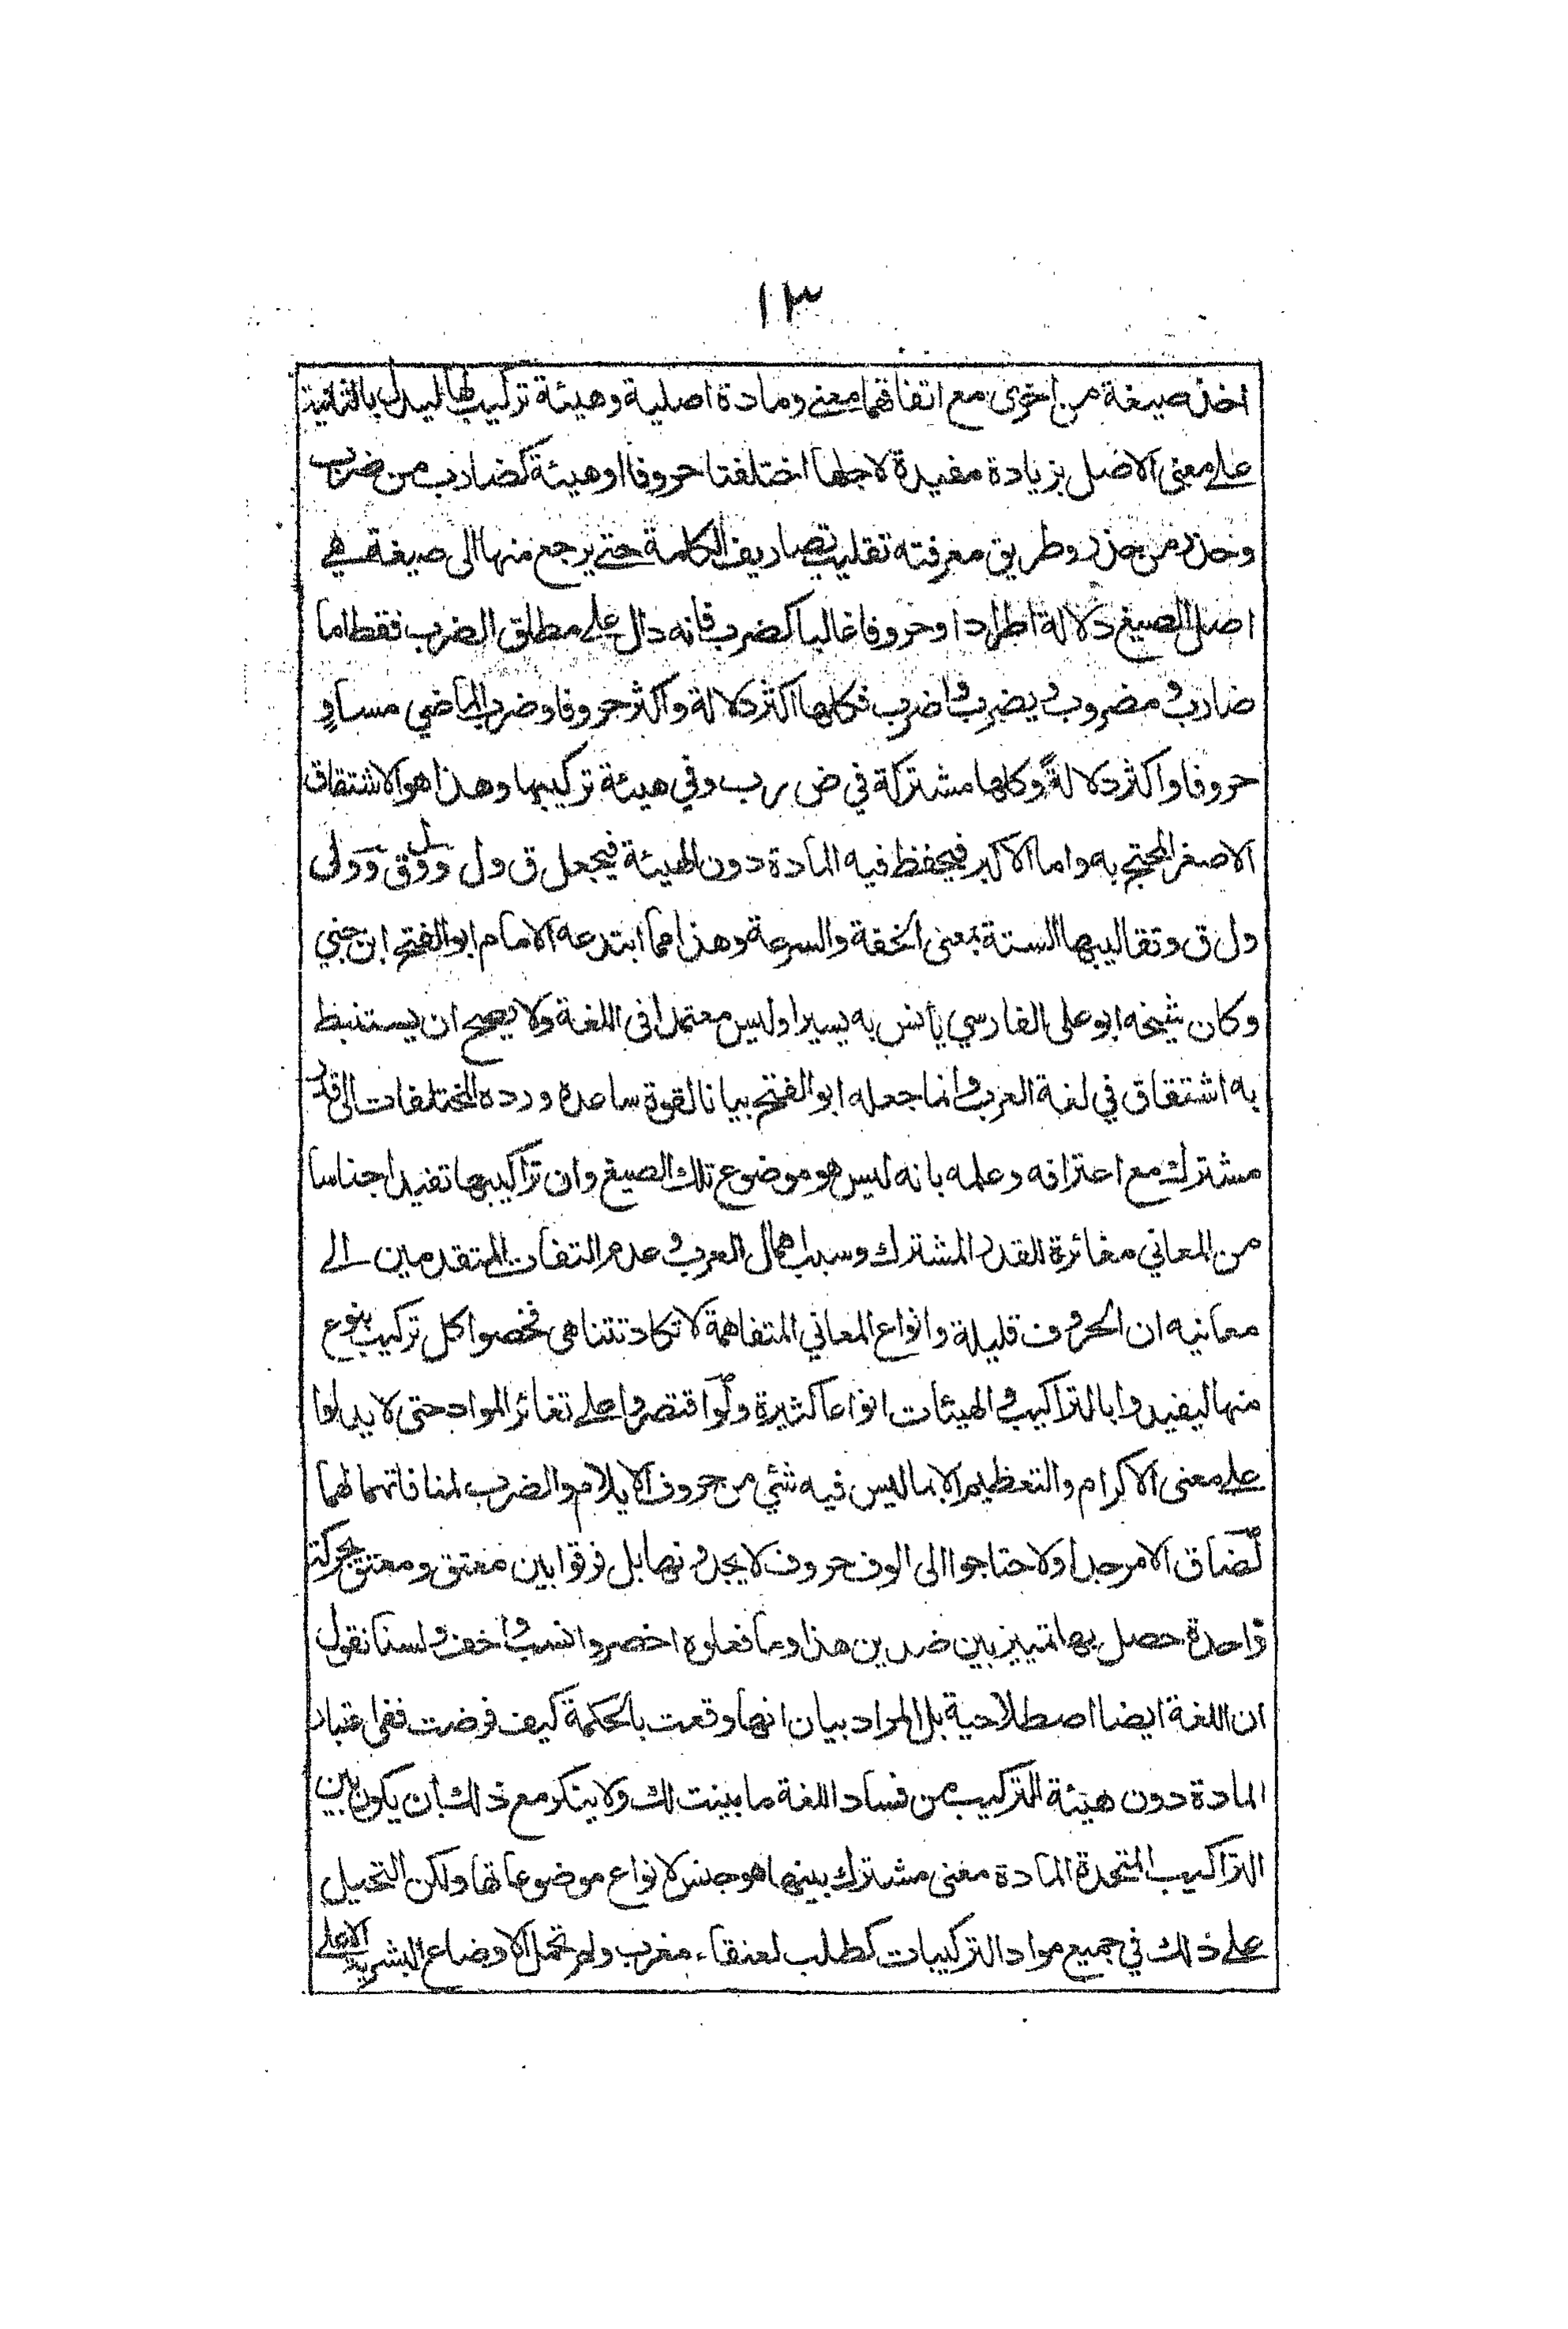 ١٣
اخذ صيغة من اخرى مع اتفاقهما معنى ومادة اصلية وهيئة تركيب لها ليدل بالثانية
على معنى الاصل بزيادة مفيدة لاجلها اختلفتا حروفا او هيئة كضارب من ضرب
وحذر من حذر وطريق معرفته تقليب تصاريف الكلمة حتى يرجع منها الى صيغة هي
اصل الصيغ دلالة اطراد او حروفا غالبا كضرب فانه دال على مطلق الضرب فقط اما
ضارب ومضروب ويضرب واضرب فكلها اكثر دلالة واكثر حروفا وضرب الماضي مساوٍ
حروفا واكثر دلالةً وكلها مشتركة في ض ر ب وفي هيئة تركيبها وهذا هو الاشتقاق
الاصغر المحتج به واما الاكبر فيحفظ فيه المادة دون الهيئة فيجعل ق ول و و ق ل و ول ق
ول ق وتقاليبها الستة بمعنى الخفة والسرعة وهذا مما ابتدعه الامام ابو الفتح ابن جني
وكان شيخه ابو على الفارسي يأنس به يسيرا وليس معتمدا في اللغة ولا يصح ان يستنبط
به اشتقاق في لغة العرب وانما جعله ابو الفتح بيانا لقوة ساعده ورده المختلفات الى قدر
مشترك مع اعترافه وعلمه بانه ليس هو موضوع تلك الصيغ وان تراكيبها تفيد اجناسا
من المعاني مغائرة للقدر المشترك وسبب اهمال العرب وعدم التفات المتقدمين الى
معانيه ان الحروف قليلة وانواع المعاني المتفاهمة لا تكاد تتناهى فخصوا كل تركيب بنوع
منها ليفيدوا بالتراكيب والهيئات انواعا كثيرة ولو اقتصروا على تغائر المواد حتى لا يدلوا
على معنى الاكرام والتعظيم الا بما ليس فيه شئي من حروف الايلام والضرب لمنافاتهما لهما
لضاق الامر جدا ولاحتاجوا الى الوف حروف لا يجدونها بل فرقوا بين معتق ومعتق بحركة
واحدة حصل بها تمييز بين ضدين هذا وما فعلوه اخصر وانسب واخف ولسنا نقول
ان اللغة ايضا اصطلاحية بل المراد بيان انها وقعت بالحكمة كيف فرضت ففى اعتبار
المادة دون هيئة التركيب من فساد اللغة ما بينت لك ولا ينكر مع ذلك ان يكون بين
التراكيب المتحدة المادة معنى مشترك بينها هو جنس لانواع موضوعاتها ولكن التحيل
على ذلك في جميع مواد التركيبات كطلب لعنقاء مغرب ولم تحمل الاوضاع البشرية الا على